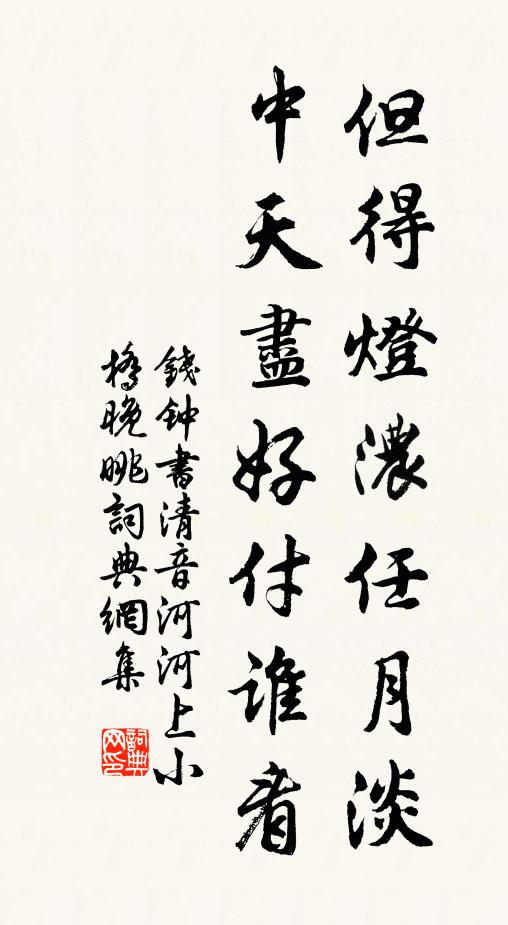 但得燈濃任月淡
中天盡好付誰看
錢钟書清音河河上小
橋晚眺詞典網集
詞典
网印